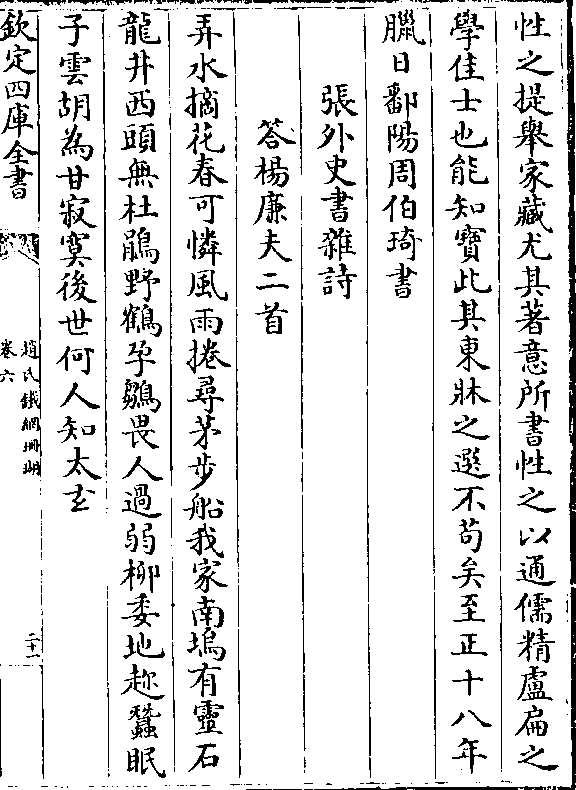 性之提舉家藏尤其著意所書性之以通儒精盧扁之
學佳士也能知寶此其東牀之選不苟矣至正十八年
臘日鄱陽周伯琦書
張外史書雜詩
答楊廉夫二首
弄水摘花春可憐風雨捲尋茅步船我家南塢有靈石
龍井西頭無杜鵑野鶴孕鶵畏人過弱柳委地趂蠶眠
子雲胡為甘寂寞後世何人知太玄
欽定四庫全書
趙氏鐵網珊瑚
卷六
二十一